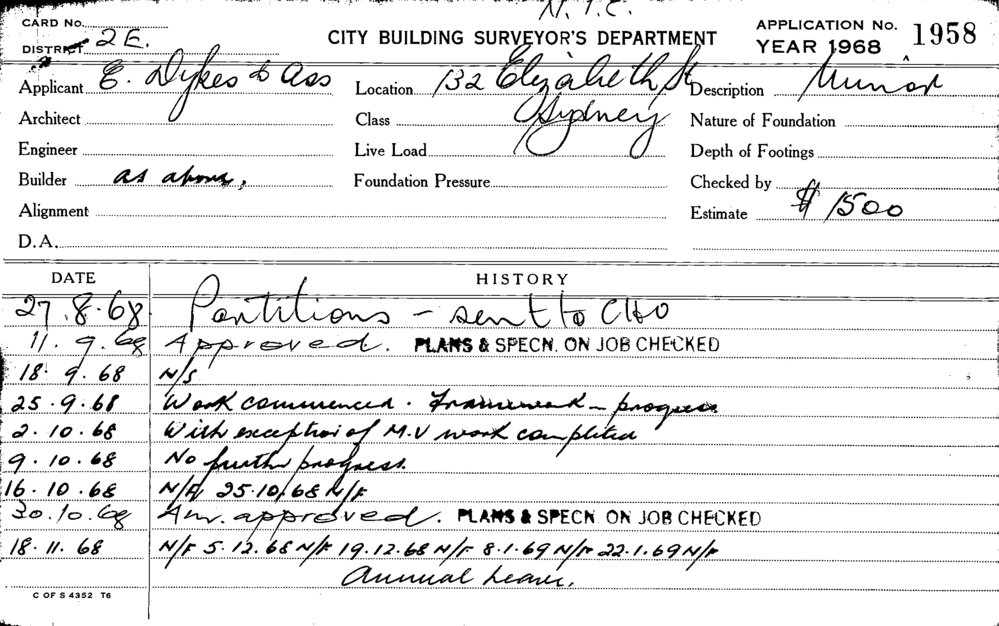 N.I.C.
CARD No.
CITY BUILDING SURVEYOR'S DEPARTMENT
APPLICATION No. 1958
DISTRICT 2E.
YEAR 1968
Applicant E. Dykes & Ass
Location 132 Elizabeth St
Sydney
Description Minor
Architect
Class
Nature of Foundation
Engineer
Live Load
Depth of Footings
Builder as above,
Foundation Pressure
Checked by
Alignment
Estimate $ 1500
D.A.
DATE HISTORY
27.8.68 Partitions - sent to CHO
11.9.68 Approved. PLANS & SPECN. ON JOB CHECKED
18.9.68 N/S
25.9.68 Work commenced. Framework - progress
2.10.68 With exception of M.V work completed
9.10.68 No further progress.
16.10.68 N/F, 25.10.68 N/F
30.10.68 Am. approved. PLANS & SPECN. ON JOB CHECKED
18.11.68 N/F 5.12.68 N/F 19.12.68 N/F 8.1.69 N/F 22.1.69 N/F
Annual Leave.
C OF S 4352 T6